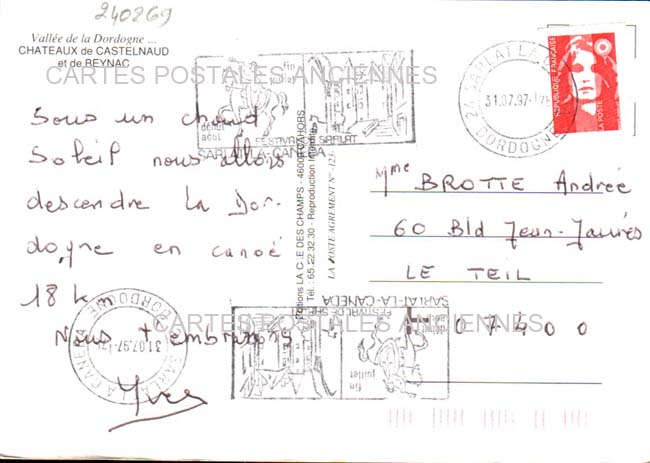 240269
Vallée de la Dordogne ...
CHATEAUX de CASTELNAUD
et de BEYNAC
CARTES POSTALES ANCIENNES
Sous un chaud
Soleil nous allons
descendre la Dor-
dogne en canoé
18 km
Nous t'embrassons
Yves
fin
juillet
début
août
FESTIVAL DE SARLAT
SARLAT-LA-CANEDA
24 SARLAT LA CANEDA
31.07.97
DORDOGNE
REPUBLIQUE FRANÇAISE
LA POSTE
Editions LA C.E DES CHAMPS - 46000 CAHORS
Tél. : 65.22.32.30 - Reproduction interdite
LA POSTE AGREMENT N° 124
Mme BROTTE Andrée
60 Bld Jean-Jaurès
LE TEIL
07400
SARLAT-LA-CANEDA
FESTIVAL DE SARLAT
début
août
fin
juillet
CARTES POSTALES ANCIENNES
SARLAT LA CANEDA
31.07.97
DORDOGNE